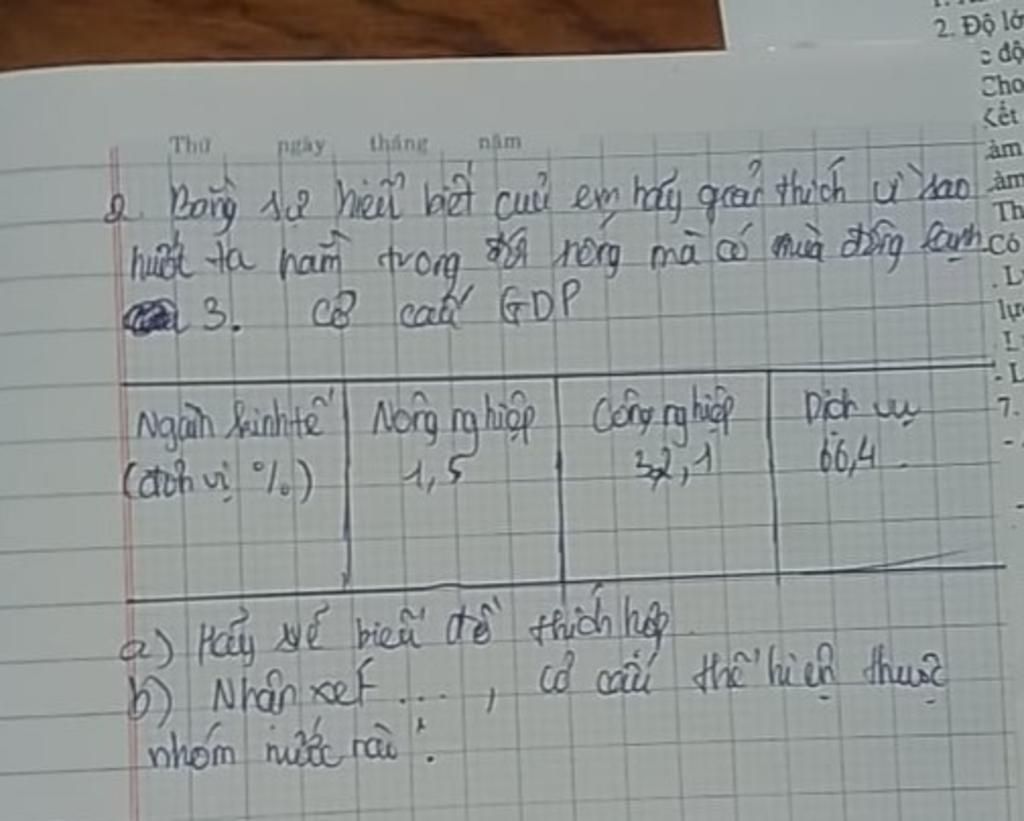 2. Độ lớ
độ
Cho
Kết
àm
àm
Th
Có
. L
lự
L
- L
7.
-
Thứ ngày tháng năm
2. Bằng sự hiểu biết của em hãy giải thích vì sao
nước ta nằm trong đới nóng mà có mùa đông lạnh
3. Cơ cấu GDP
Ngành kinh tế
(đơn vị %)
Nông nghiệp
1,5
Công nghiệp
32,1
Dịch vụ
66,4
a) Hãy vẽ biểu đồ thích hợp
b) Nhận xét ..., cơ cấu thể hiện thuộc
nhóm nước nào :